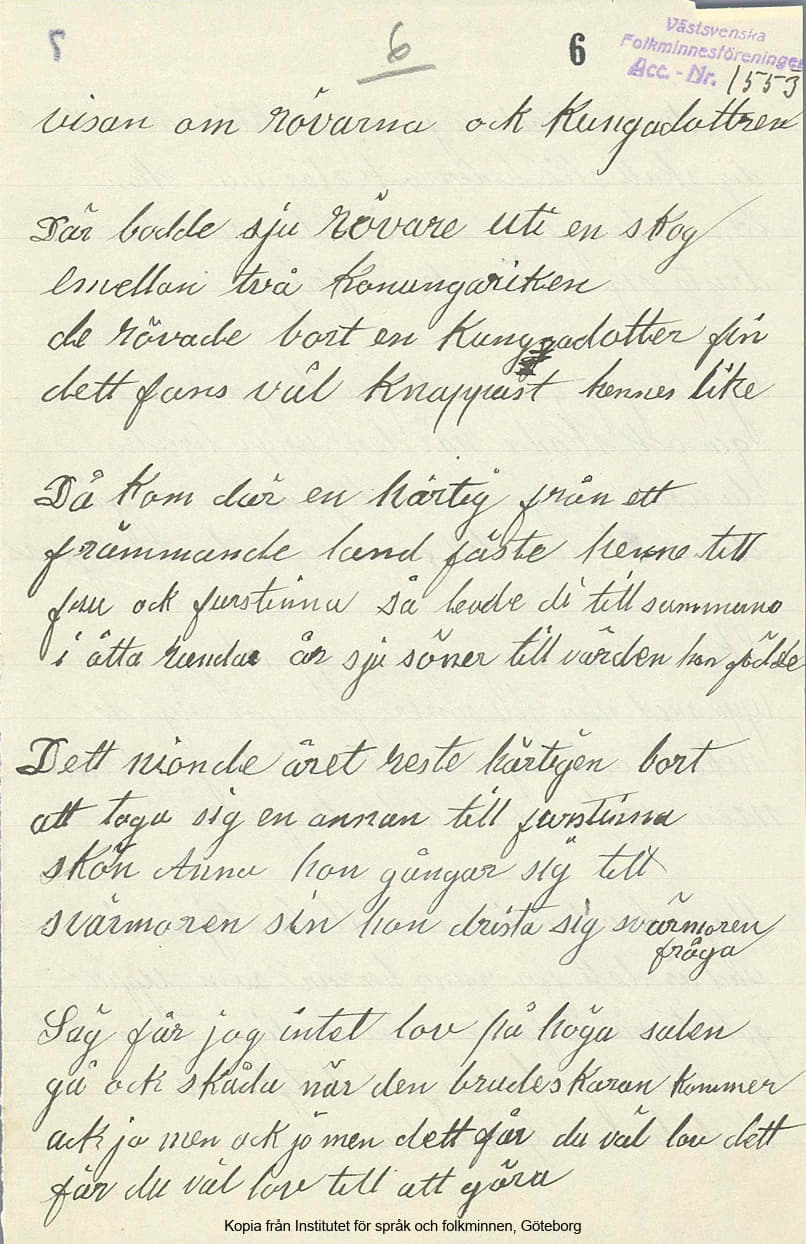 5 6 6
Västsvenska
Folkminnesföreningen
Acc. - Nr. 1553
visan om rövarna ock Kungadottren
Där bodde sju rövare uti en skog
emellan två Konungariken
de rövade bort en Kungadotter fin
dett fans väl Knappast hennes like
Då kom där en härtig från ett
främmande land fäste henne till
fru ock furstinna så levde di till sammans
i åtta runda år sju söner till värden hon födde
Dett nionde året reste härtigen bort
att taga sig en annan till furstinna
skön Anna hon gångar sig till
svärmoren sin hon drista sig svärmoren
fråga
Säg får jag intet lov på höga salen
gå ock skåda när den brudeskaran kommer
ack jo men ock jo men dett får du väl lov dett
får du väl lov till att göra
Kopia från Institutet för språk och folkminnen, Göteborg